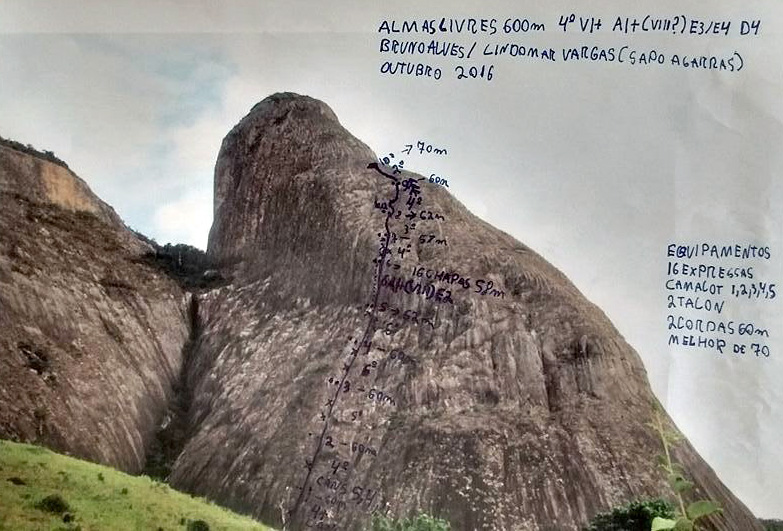 ALMAS LIVRES 600m 4º VI+ A1+(VIII?) E3/E4 D4
BRUNO ALVES / LINDOMAR VARGAS (SAPO AGARRAS)
OUTUBRO 2016
→ 70m
2º
60m
4º
→ 62m
3º
57m
4º
16 CHAPAS 58m
5 → 62m
6º
4 - 60m
6º
3 - 60m
5º
2 - 60m
4º
EQUIPAMENTOS
16 EXPRESSAS
CAMALOT 1,2,3,4,5
2 TALON
2 CORDAS 60m
MELHOR DE 70